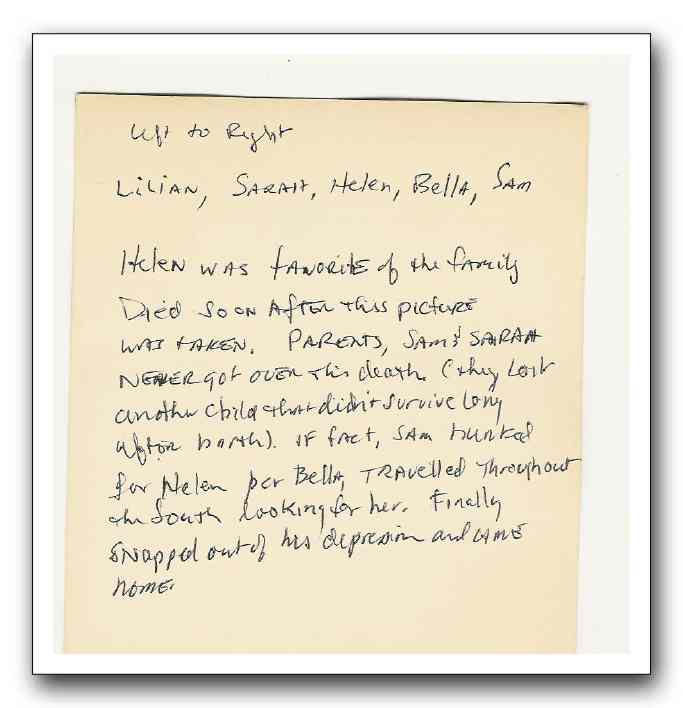 Left to Right
LiLiAN, SARAH, Helen, Bella, SAM
Helen WAS FAVORITE of the family
Died SOON AFTER this picture
WAS TAKEN. PARENTS, SAM & SARAH
NEVER got OVER this death. (they lost
another child that didn't survive long
after birth). IF fact, SAM hunted
for Helen per Bella, TRAVELLED Throughout
the South looking for her. Finally
SNapped out of his depression and CAME
HOME.